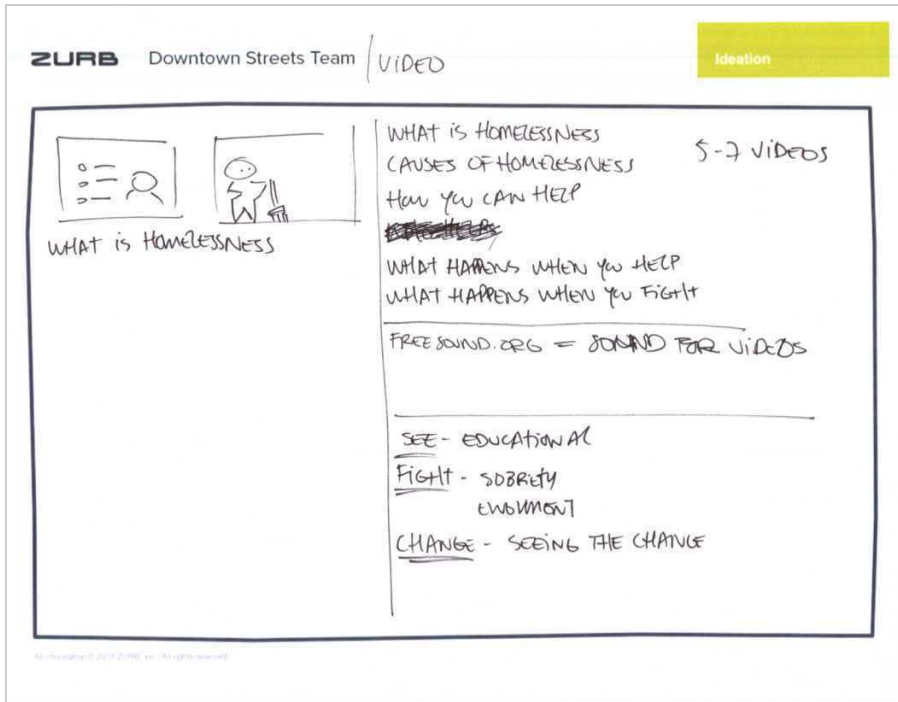 ZURB Downtown Streets Team / VIDEO
Ideation
WHAT IS HOMELESSNESS
WHAT IS HOMELESSNESS
CAUSES OF HOMELESSNESS
5-7 VIDEOS
HOW YOU CAN HELP
WHAT HAPPENS WHEN YOU HELP
WHAT HAPPENS WHEN YOU FIGHT
FREESOUND.ORG = SOUND FOR VIDEOS
SEE - EDUCATIONAL
FIGHT - SOBRIETY
CHANGE - SEEING THE CHANGE
All information © 2014 ZURB, inc. All rights reserved